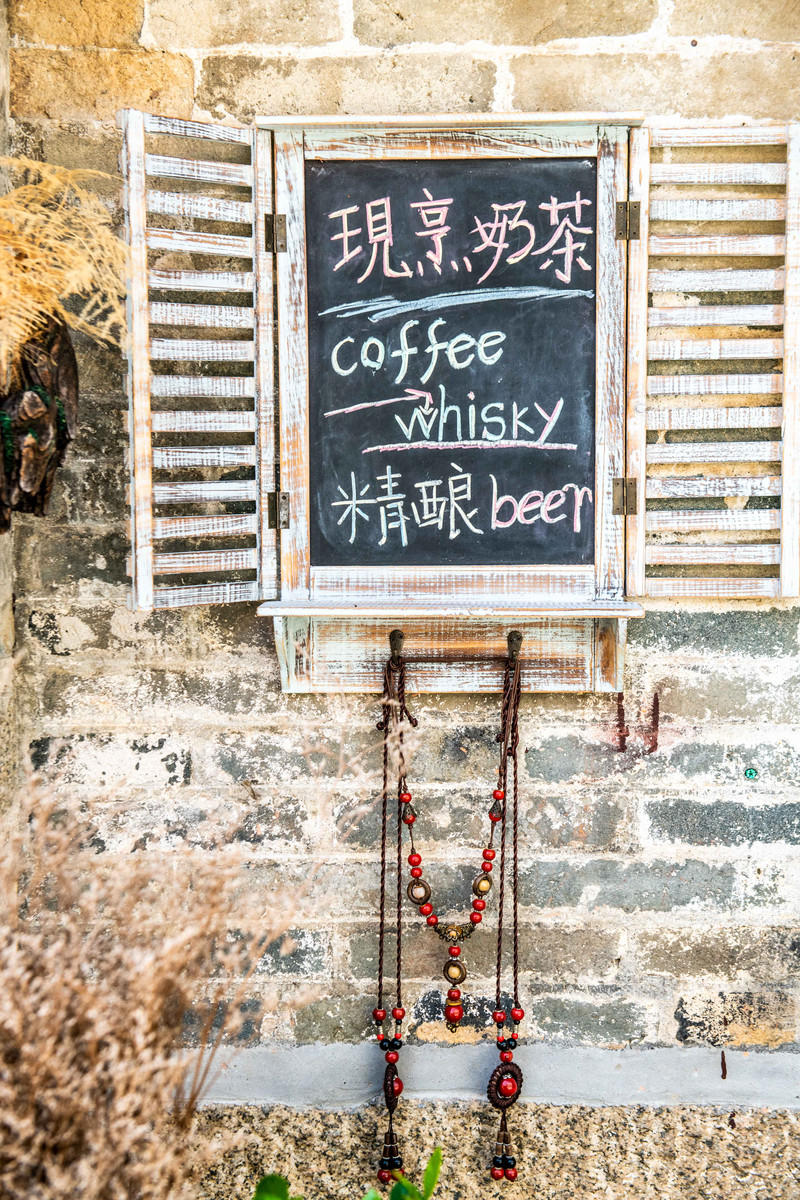 現烹奶茶
coffee
whisky
精酿beer